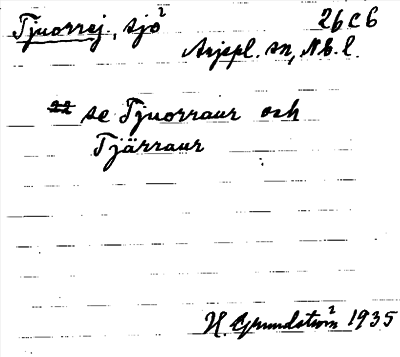 Tjuorrej, sjö² 26 C 6
Arjepl. sn, N.B. l.
se Tjuorraur och
Tjärraur
H. Grundström² 1935